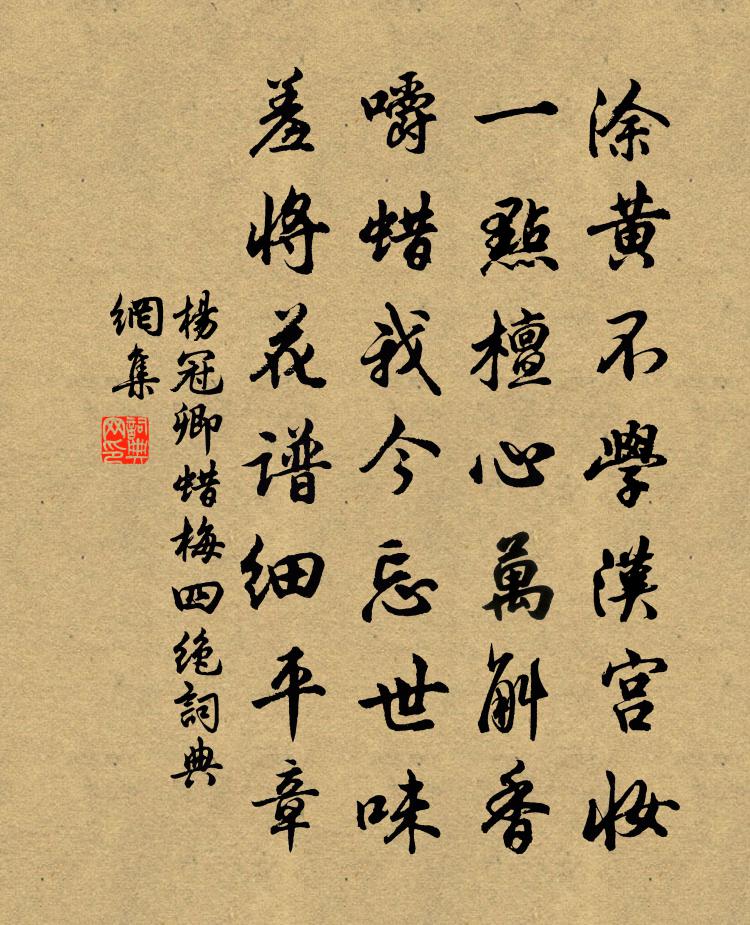 涂黄不學漢宫妝
一點檀心萬斛香
嚼蜡我今忘世味
羞將花谱细平章
楊冠卿蜡梅四绝詞典
網集
詞典网印